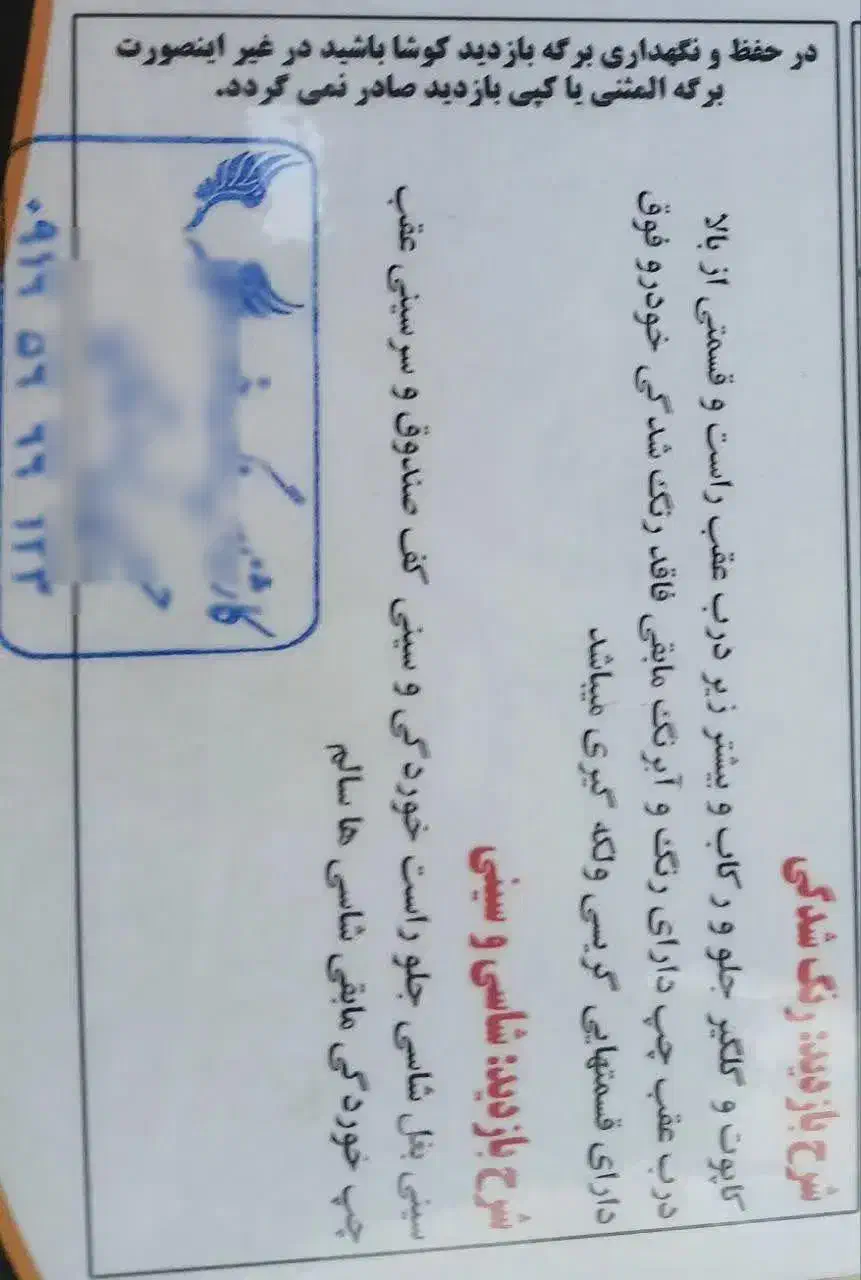 در حفظ و نگهداری برگه بازدید کوشا باشید در غیر اینصورت
برگه المثنی یا کپی بازدید صادر نمی گردد.
شرح بازدید: رنگ شدگی
کاپوت و گلگیر جلو و رکاب و بیشتر زیر درب عقب راست و قسمتی از بالا
درب عقب چپ دارای رنگ و آبرنگ مابقی فاقد رنگ شدگی خودرو فوق
دارای قسمتهایی گریسی ولکه گیری میباشد
شرح بازدید: شاسی و سینی
سینی بغل شاسی جلو راست خوردگی و سینی کف صندوق و سرسینی عقب
چپ خوردگی مابقی شاسی ها سالم